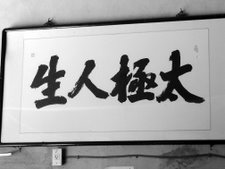 太極人生